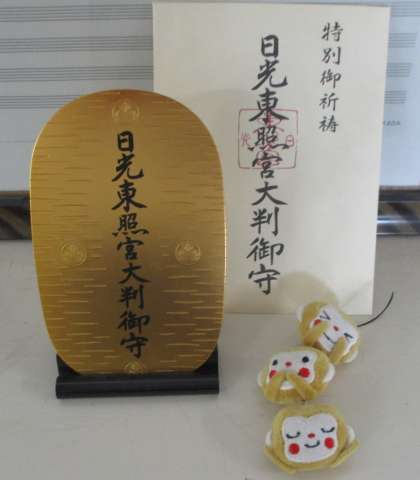 特別御祈祷
日光東照宮大判御守
日光東照宮大判御守